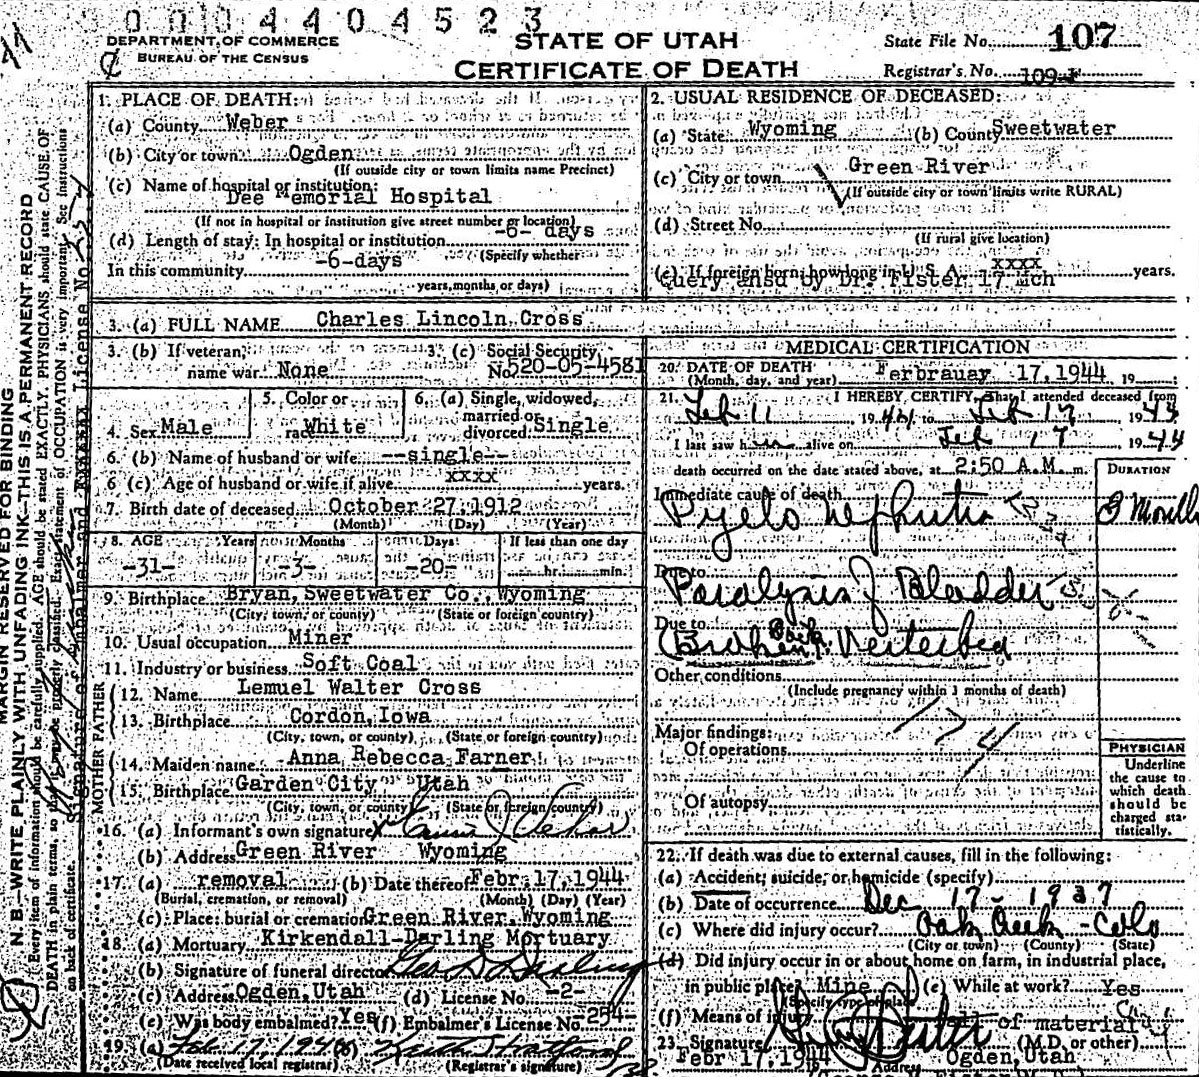 0004404523
DEPARTMENT OF COMMERCE
BUREAU OF THE CENSUS
STATE OF UTAH
CERTIFICATE OF DEATH
State File No. 107
Registrar's No. 109-F
1. PLACE OF DEATH:
(a) County Weber
(b) City or town Ogden
(If outside city or town limits name Precinct)
(c) Name of hospital or institution:
Dee Memorial Hospital
(If not in hospital or institution give street number or location)
(d) Length of stay: In hospital or institution -6- days
(Specify whether
In this community -6-days
years, months, or days)
2. USUAL RESIDENCE OF DECEASED:
(a) State Wyoming (b) County Sweetwater
(c) City or town Green River
(If outside city or town limits write RURAL)
(d) Street No.
(If rural give location)
(e) If foreign born, how long in U. S. A. xxxx years.
Query ansd by Dr. Fister 17 Mch
3. (a) FULL NAME Charles Lincoln Cross
3. (b) If veteran, name war None
3. (c) Social Security No. 520-05-4581
4. Sex Male
5. Color or race White
6. (a) Single, widowed, married or divorced Single
6. (b) Name of husband or wife --single--
6 (c) Age of husband or wife if alive xxxx years.
7. Birth date of deceased October 27, 1912
(Month) (Day) (Year)
8. AGE Years Months Days If less than one day
-31- -3- -20- hr. min.
9. Birthplace Bryan, Sweetwater Co., Wyoming
(City, town, or county) (State or foreign country)
10. Usual occupation Miner
11. Industry or business Soft Coal
FATHER
12. Name Lemuel Walter Cross
13. Birthplace Cordon, Iowa
(City, town, or county) (State or foreign country)
MOTHER
14. Maiden name Anna Rebecca Farner
15. Birthplace Garden City Utah
(City, town, or county) (State or foreign country)
16. (a) Informant's own signature
(b) Address Green River Wyoming
17. (a) removal (b) Date thereof Febr. 17, 1944
(Burial, cremation, or removal) (Month) (Day) (Year)
(c) Place: burial or cremation Green River, Wyoming
18. (a) Mortuary Kirkendall-Darling Mortuary
(b) Signature of funeral director Geo D Darling
(c) Address Ogden, Utah (d) License No. -2-
(e) Was body embalmed? Yes (f) Embalmer's License No. -254-
19. (a) Feb. 17, 1944 (b) Keith Stratford
(Date received local registrar) (Registrar's signature)
MEDICAL CERTIFICATION
20. DATE OF DEATH
(Month, day, and year) Ferbrauay 17, 1944, 19
21. I HEREBY CERTIFY, That I attended deceased from
Feb 11 1944 to Feb 17 1944
I last saw him alive on Feb 17 1944
death occurred on the date stated above, at 2:50 A.M. m.
DURATION
Immediate cause of death
Pyelo Nephritis
3 Months
Due to
Paralysis of Bladder
Due to
Broken Back Vertebra
Other conditions
(Include pregnancy within 3 months of death)
Major findings:
Of operations
Of autopsy
174
PHYSICIAN
Underline the cause to which death should be charged statistically.
22. If death was due to external causes, fill in the following:
(a) Accident, suicide, or homicide (specify)
(b) Date of occurrence Dec 17 - 1937
(c) Where did injury occur? Oak Creek - Colo
(City or town) (County) (State)
(d) Did injury occur in or about home on farm, in industrial place,
in public place? Mine (e) While at work? Yes
(Specify type of place)
(f) Means of injury of material
23. Signature (M.D. or other)
Febr 17, 1944 Address Ogden, Utah
MARGIN RESERVED FOR BINDING
N. B.—WRITE PLAINLY WITH UNFADING INK—THIS IS A PERMANENT RECORD
Every item of information should be carefully supplied. AGE should be stated EXACTLY. PHYSICIANS should state CAUSE OF
DEATH in plain terms, so that it may be properly classified. Exact statement of OCCUPATION is very important. See instructions
on back of certificate.
Signature of Embalmer and xxxxxx License No.